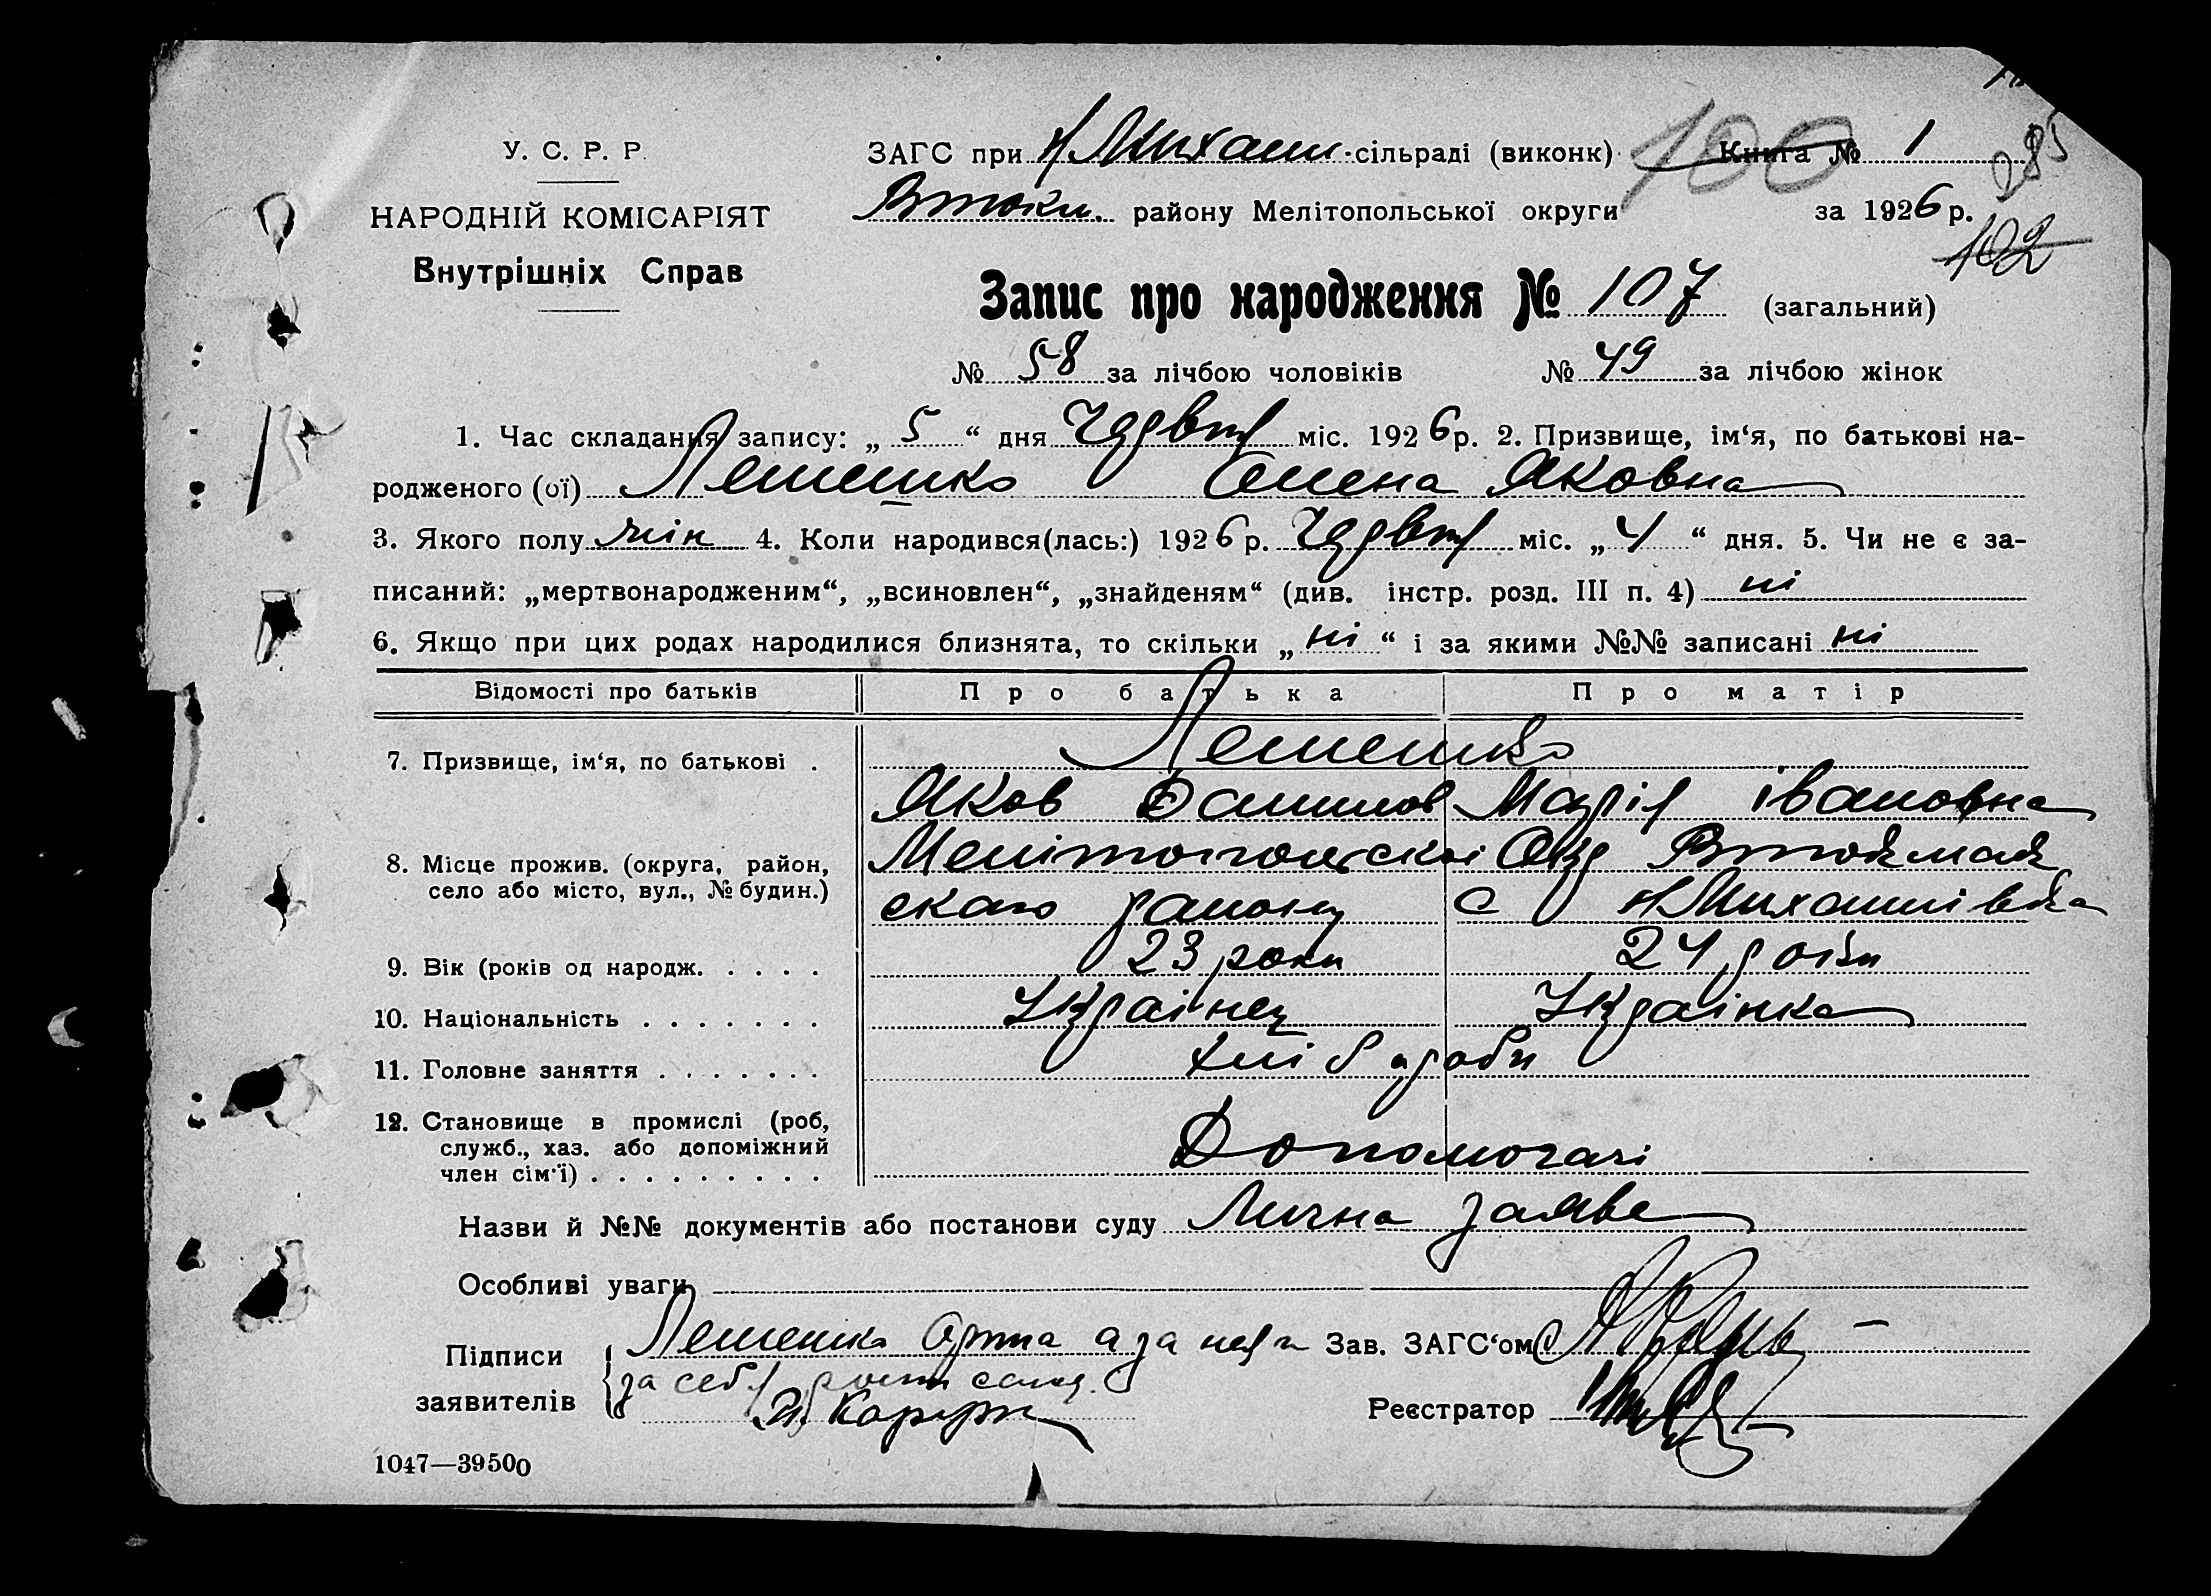 У. С. Р. Р.
НАРОДНІЙ КОМІСАРІЯТ
Внутрішніх Справ
ЗАГС при Н Михайл. сільраді (виконк) Книга № 1
100
385
Втокм. району Мелітопольської округи за 1926 р.
102
Запис про народження № 107 (загальний)
№ 58 за лічбою чоловіків № 49 за лічбою жінок
1. Час складання запису: „ 5 “ дня міс. 1926 р. 2. Призвище, ім‘я, по батькові на-
родженого (ої) Лемешко Олена Яковна
3. Якого полу жін 4. Коли народився(лась:) 1926 р. міс. „ 4 “ дня. 5. Чи не є за-
писаний: „мертвонародженим“, „всиновлен“, „знайденям“ (див. інстр. розд. III п. 4) ні
6. Якщо при цих родах народилися близнята, то скільки „ ні “ і за якими №№ записані ні
Відомості про батьків Про батька Про матір
7. Призвище, ім‘я, по батькові . Лемешко
Яков Данилов Марія івановна
8. Місце прожив. (округа, район, село або місто, вул., № будин.) Мелітопольскоі Окр Втокмак
скаго району с Н Михайлівка
9. Вік (років од народж. . . . . 23 роки 24 роки
10. Національність . . . . . . . Украінец Украінка
11. Головне заняття . . . . . . . хлібороби
12. Становище в промислі (роб, служб., хаз. або допоміжний член сім‘ї) . . . . . . . . . Допомогачі
Назви й №№ документів або постанови суду Лична заява
Особливі уваги
Підписи заявителів Лемешко а за нея Зав. ЗАГС‘ом
за себя
Реєстратор
1047—39500